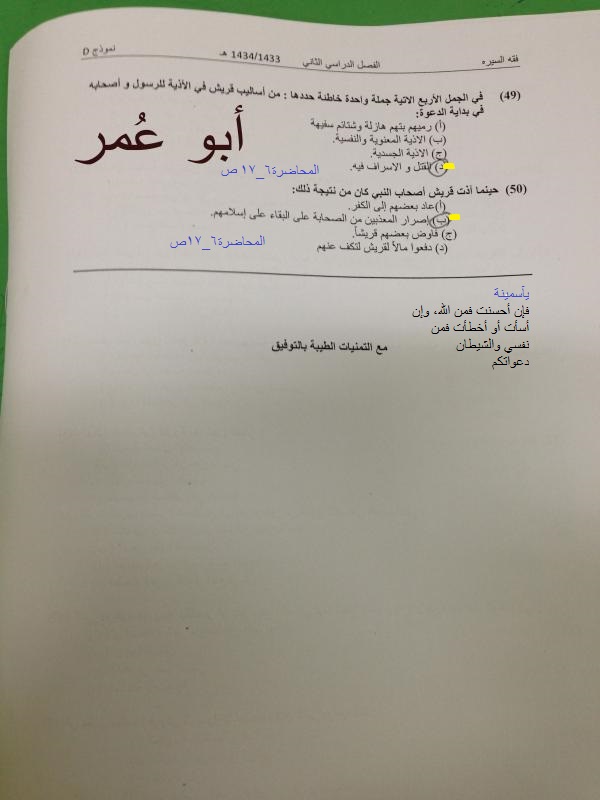 فقه السيره الفصل الدراسي الثاني 1434/1433 هـ نموذج D
(49) في الجمل الأربع الاتية جملة واحدة خاطئة حددها : من أساليب قريش في الأذية للرسول و أصحابه
في بداية الدعوة:
(أ) رميهم بتهم هازلة وشتائم سفيهة
(ب) الاذية المعنوية والنفسية.
(ج) الاذية الجسدية.
(د) القتل و الاسراف فيه.
المحاضرة٦_١٧ ص
أبو عُمر
(50) حينما أذت قريش أصحاب النبي كان من نتيجة ذلك:
(أ) عاد بعضهم إلى الكفر.
(ب) إصرار المعذبين من الصحابة على البقاء على إسلامهم.
(ج) فاوض بعضهم قريشاً.
المحاضرة٦_١٧ص
(د) دفعوا مالاً لقريش لتكف عنهم
يآسمينة
فإن أحسنت فمن الله، وإن
أسأت أو أخطأت فمن
نفسي والشيطان
مع التمنيات الطيبة بالتوفيق
دعواتكم